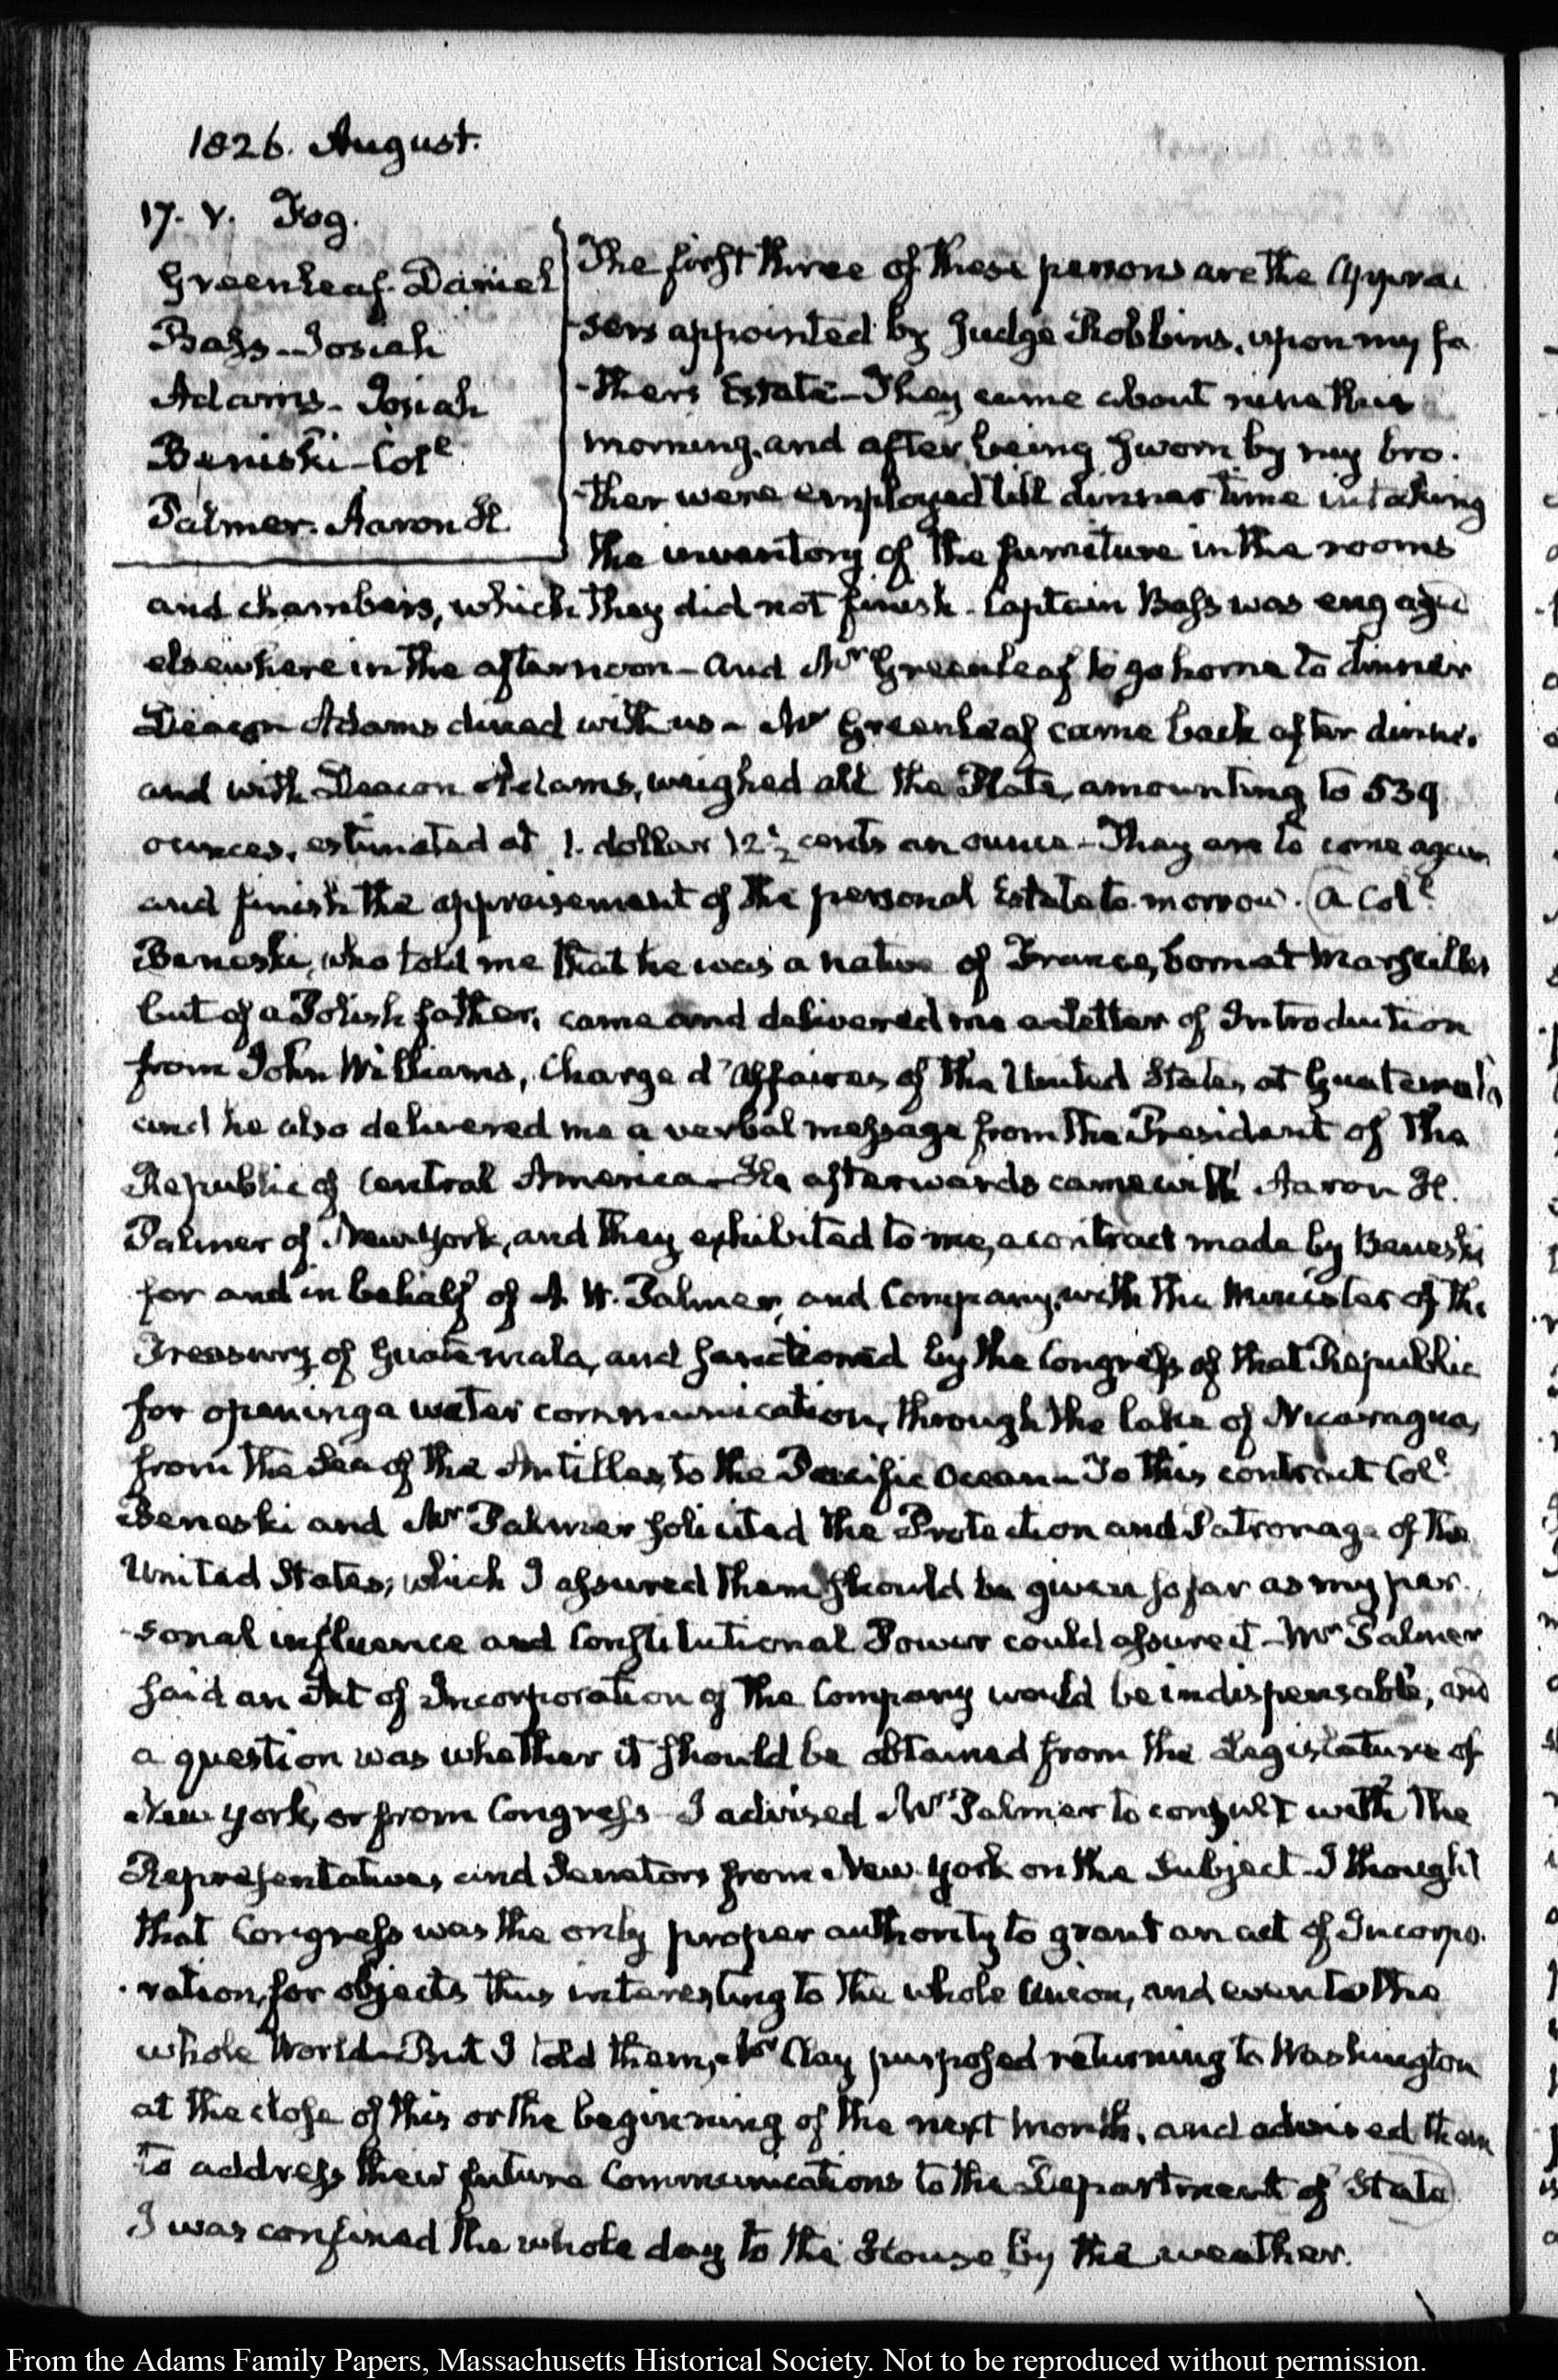 1826. August.
17. V. Fog.
Greenleaf. Daniel
Bass. Josiah
Adams. Josiah
Beniski. Colˡ
Palmer. Aaron H.
The first three of these persons are the Apprai
-sers appointed by Judge Robbins, upon my fa
-thers Estate—They came about nine this
morning, and after being sworn by my bro-
-ther were employed till dinner time in taking
the inventory of the furniture in the rooms
and chambers, which they did not finish. Captain Bass was engaged
elsewhere in the afternoon—and Mr Greenleaf to go home to dinner
Deacon Adams dined with us—Mr Greenleaf came back after dinner
and with Deacon Adams, weighed all the Plate, amounting to 539
ounces, estimated at 1. dollar 12½ cents an ounce—They are to come again
and finish the appraisement of the personal Estate to-morrow. (A Colˡ
Beneski, who told me that he was a native of France, born at Marseilles
but of a Polish father, came and delivered me a letter of Introduction
from John Williams, Charge d'Affaires of the United States at Guatemala
and he also delivered me a verbal message from the President of the
Republic of Central America—He afterwards came with Aaron H.
Palmer of New York, and they exhibited to me, a contract made by Beneski
for and in behalf of A. H. Palmer, and Company, with the Minister of the
Treasury of Guatemala, and sanctioned by the Congress of that Republic
for opening a water communication, through the lake of Nicaragua,
from the Sea of the Antilles, to the Pacific Ocean—To this contract Colˡ
Beneski and Mr Palmer solicited the Protection and Patronage of the
United States; which I assured them should be given so far as my per-
-sonal influence and Constitutional Power could assure it—Mr Palmer
said an Act of Incorporation of the Company would be indispensable, and
a question was whether it should be obtained from the Legislature of
New York, or from Congress—I advised Mr Palmer to consult with the
Representatives and Senators from New-York on the Subject—I thought
that Congress was the only proper authority to grant an act of Incorpo-
-ration, for objects thus interesting to the whole Union, and even to the
whole World—But I told them, Mr Clay purposed returning to Washington
at the close of this or the beginning of the next Month, and advised them
to address their future Communications to the Department of State)
I was confined the whole day to the House by the weather.
From the Adams Family Papers, Massachusetts Historical Society. Not to be reproduced without permission.